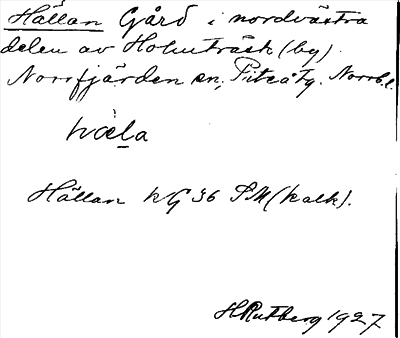 Hällan Gård i nordvästra
delen av Holmträsk (by).
Norrfjärden sn, Piteå tg. Norrb. l.
hæla
Hällan kG 36 SM (kalk).
HRutberg 1927